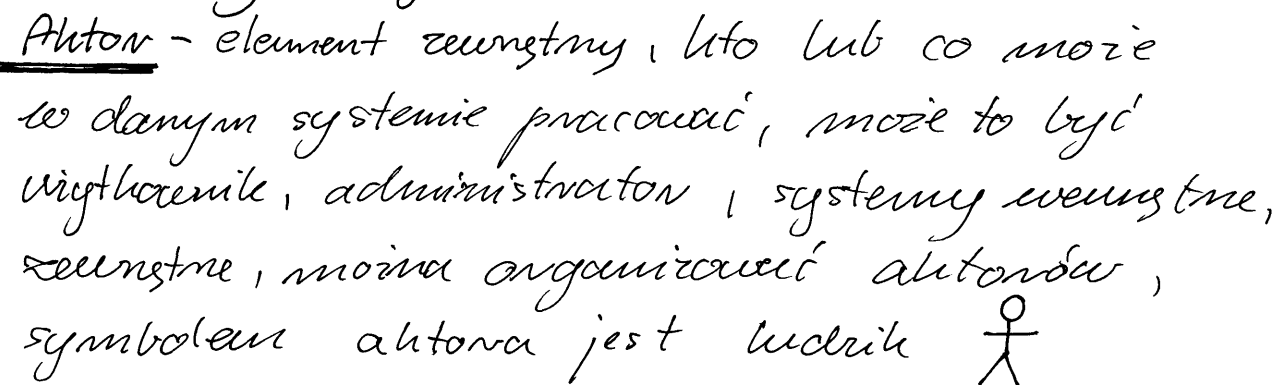 Aktor - element zewnętrzny, kto lub co może
w danym systemie pracować, może to być
użytkownik, administrator, systemy wewnętrzne,
zewnętrzne, można organizować aktorów,
symbolem aktora jest ludzik